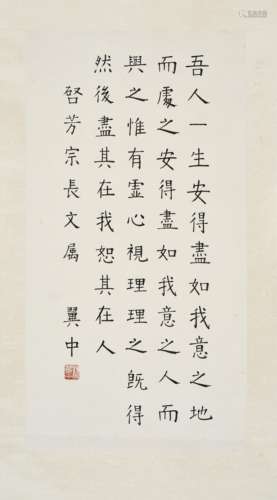 吾人一生安得盡如我意之地
而處之安得盡如我意之人而
與之惟有虛心視理理之既得
然後盡其在我恕其在人
啓芳宗長文屬
翼中